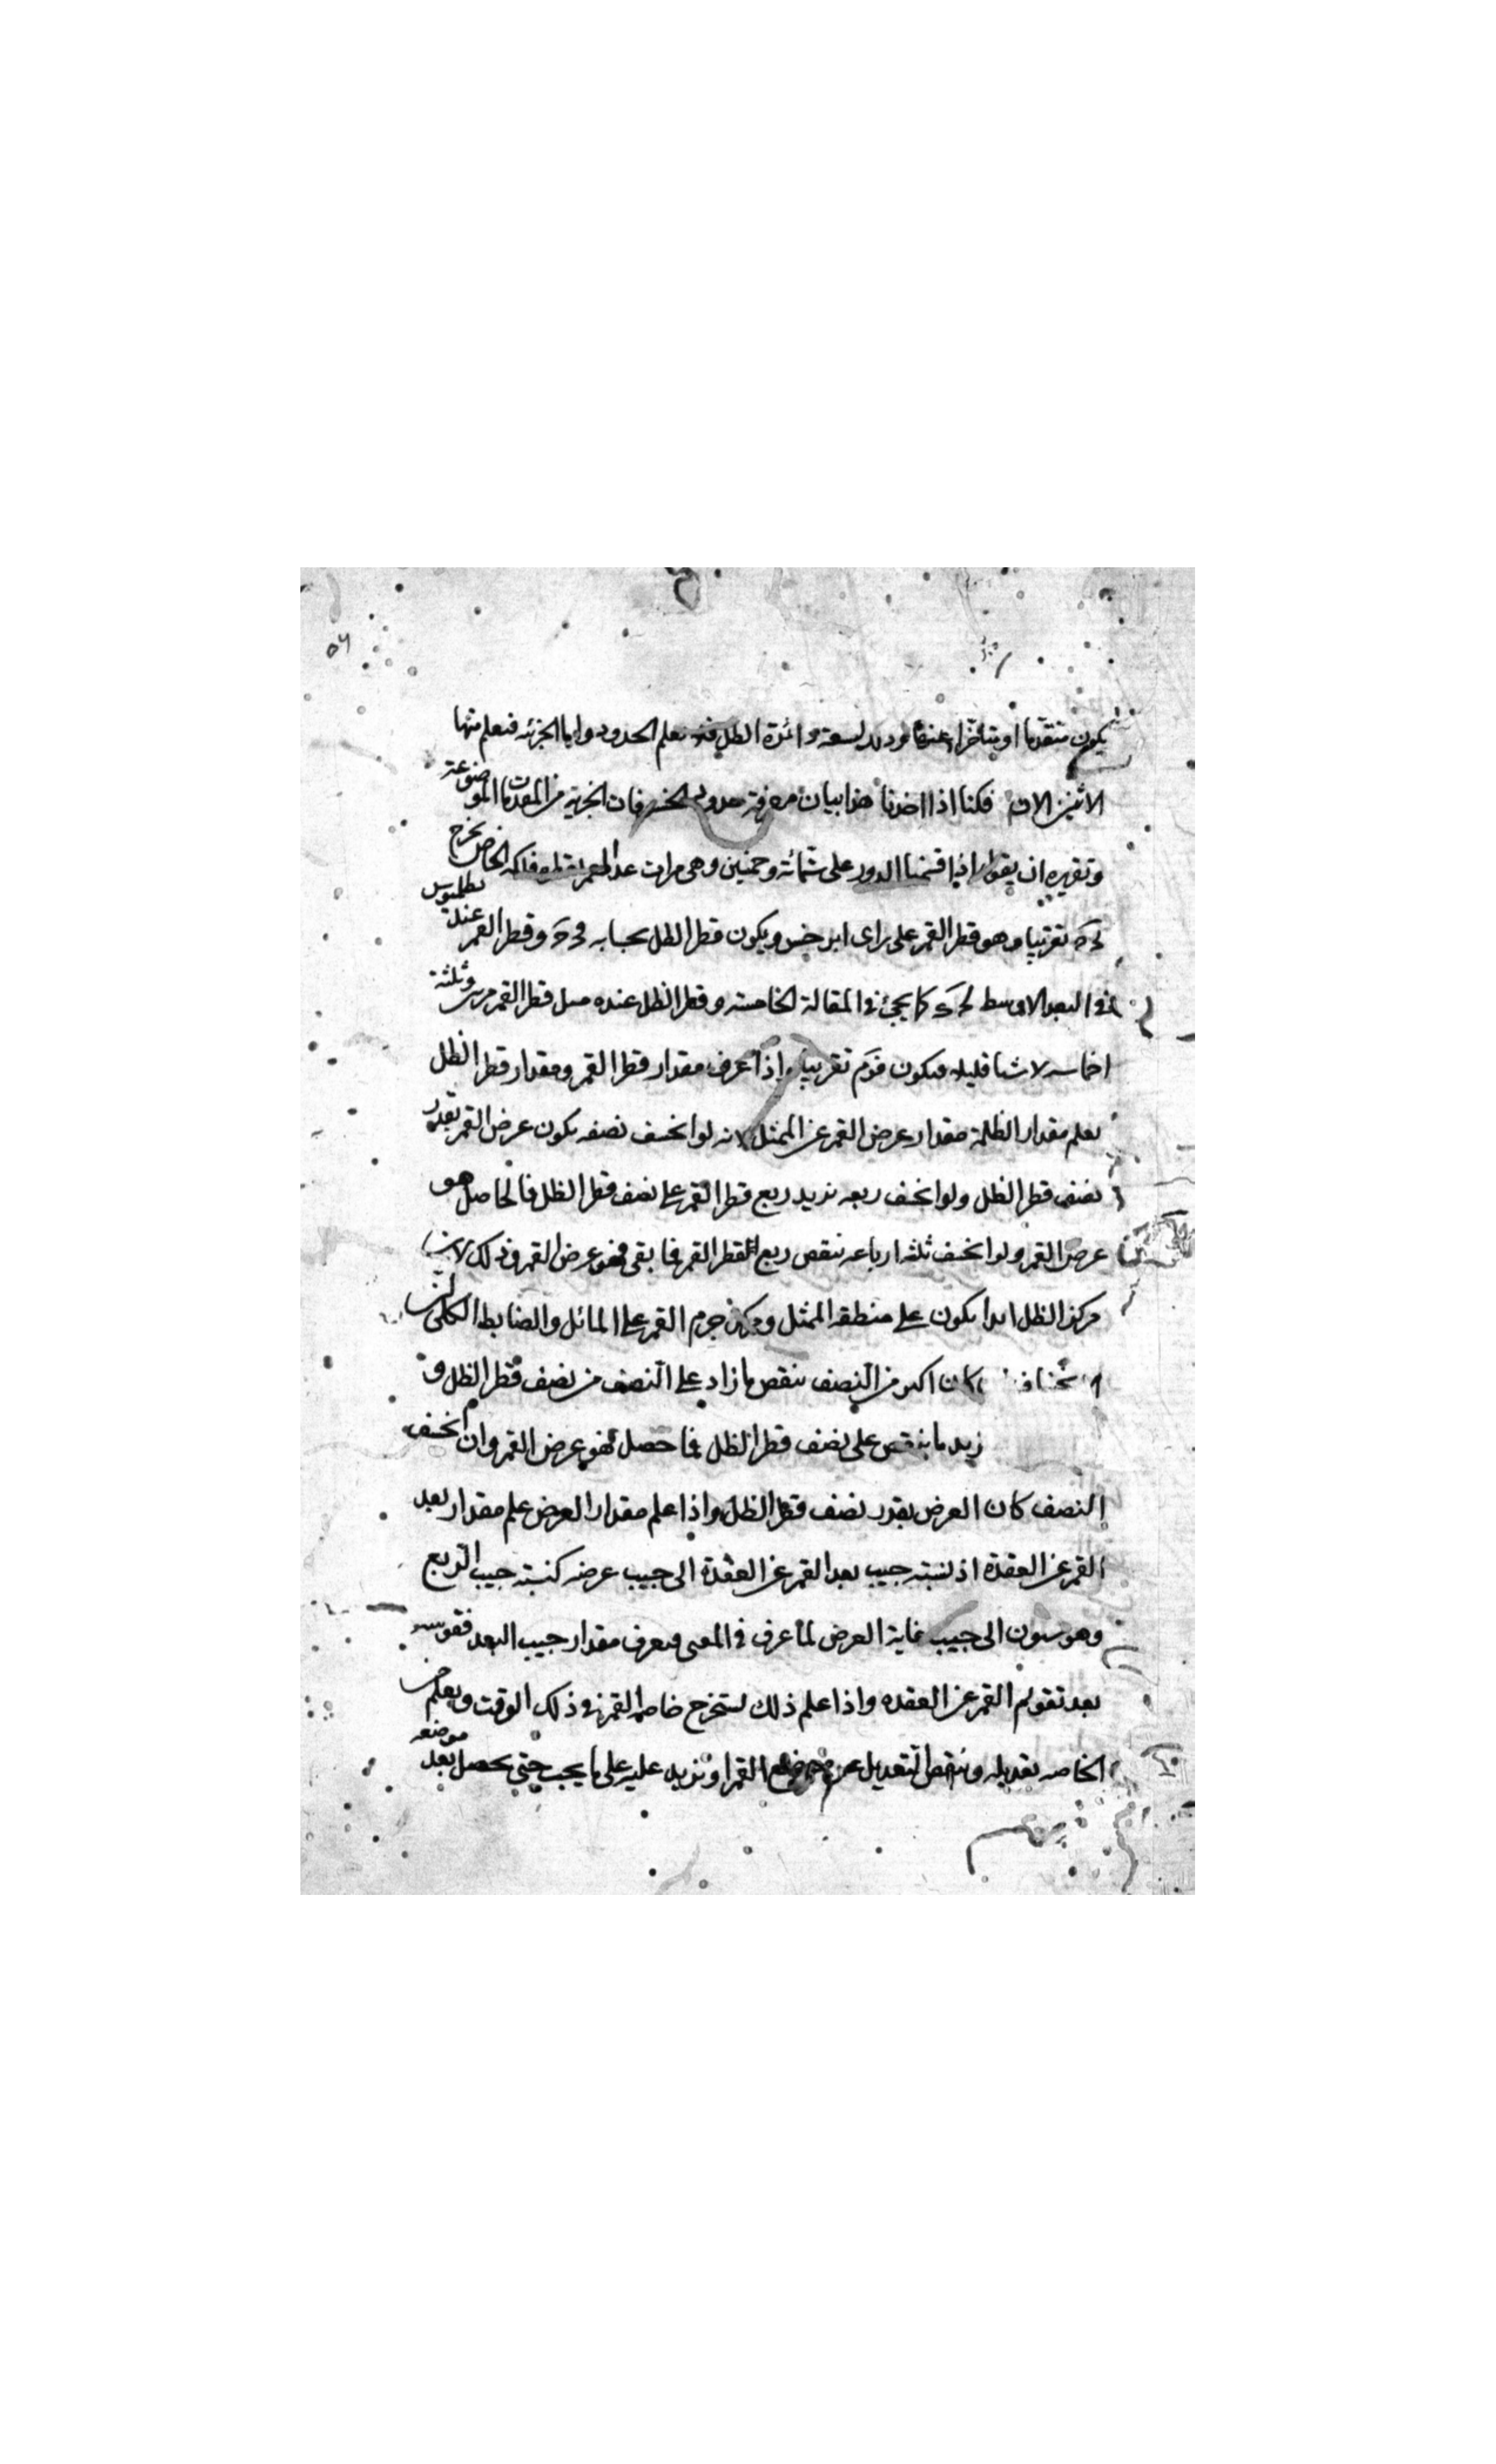 ٥٦
يكون متقدما او متأخرا عنه لسعة دائرة الظل نعلم الحدود واما الجزئه فنعلم منها
الاثنين الان فكنا اذا اخذنا هذا بيان معرفة حدود الخسوفات الجزية من المقدمات الموضوعة
وتقريره ان يقول اذا قسمنا الدور على ستمائة وخمسين وهى مرات عند الخاص يخرج
تقريبا وهو قطر القمر على راى ابرخس ويكون قطر الظل بحسابه وقطر القمر عند بطلميوس
فى البعد الاوسط كما يجئ فى المقالة الخامسة وقطر الظل عنده مثل قطر القمر مرتين وثلثة
اخماسه لا شيا قليلا فيكون تقريبا واذا عرف مقدار قطر القمر ومقدار قطر الظل
يعلم مقدار الظلمة مقدار عرض القمر عن الممثل لانه لو انخسف نصفه يكون عرض القمر بقدر
نصف قطر الظل ولو انخسف ربعه نزيد ربع قطر القمر على نصف قطر الظل فالحاصل هو
عرض القمر ولو انخسف ثلثه ارباعه ننقص ربع قطر القمر فما بقى فهو عرض القمر وذلك لان
مركز الظل ابدا يكون على منطقه الممثل ومركز جرم القمر على المائل والضابط الكلى ان
كان اكبر من النصف ننقص ما زاد على النصف من نصف قطر الظل
نزيد ما ينقص على نصف قطر الظل فما حصل فهو عرض القمر وان انخسف
النصف كان العرض بقدر نصف قطر الظل واذا علم مقدار العرض علم مقدار بعد
القمر عن العقدة اذ نسبة جيب بعد القمر عن العقدة الى جيب عرضه كنسبة جيب الربع
وهو ستون الى جيب غاية العرض لما عرف فى المغنى فيعرف مقدار جيب البعد فقوسه
بعد تقويم القمر عن العقده واذا علم ذلك نستخرج خاصة القمر فى ذلك الوقت ويعلم من
الخاصه تعديله وننقص التعديل عن موضع القمر او نزيد عليه على ما يجب حتى يحصل بعد موضعه